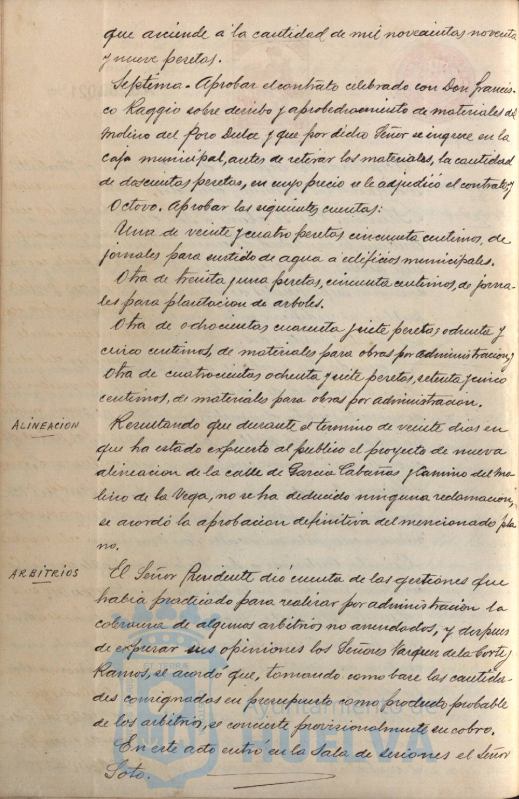 que asciende á la cantidad de mil novecientas noventa
y nueve pesetas.
Septima. Aprobar el contrato celebrado con Don Francis-
co Raggio sobre derribo y aprobechamiento de materiales del
Molino del Pozo Dulce y que por dicho Señor se ingrese en la
caja municipal, antes de retirar los materiales, la cantidad
de doscientas pesetas, en cuyo precio se le adjudicó el contrato, y
Octavo. Aprobar las siguientes cuentas:
Una de veinte y cuatro pesetas cincuenta centimos, de
jornales para surtido de agua á edificios municipales.
Otra de treinta y una pesetas, cincuenta centimos, de jorna-
les para plantacion de arboles.
Otra de ochocientas cuarenta y siete pesetas, ochenta y
cinco centimos, de materiales para obras por administracion, y
Otra de cuatrocientas ochenta y siete pesetas, setenta y cinco
centimos, de materiales para obras por administracion.
ALINEACION
Resultando que durante el termino de veinte dias en
que ha estado expuesto al publico el proyecto de nueva
alineacion de la calle de Garcia Cabañas y Camino del Mo-
lino de la Vega, no se ha deducido ninguna reclamacion,
se acordó la aprobacion definitiva del mencionado pla-
no.
ARBITRIOS
El Señor Presidente dió cuenta de las gestiones que
habia practicado para realizar por administracion la
cobranza de algunos arbitrios no arrendados, y despues
de expresar sus opiniones los Señores Vazquez de la Corte y
Ramos, se acordó que, tomando como base las cantida-
des consignadas en presupuesto como producto probable
de los arbitrios, se concierte provisionalmente su cobro.
En este acto entro en la Sala de sesiones el Señor
Soto.
Ayuntamiento de
HUELVA